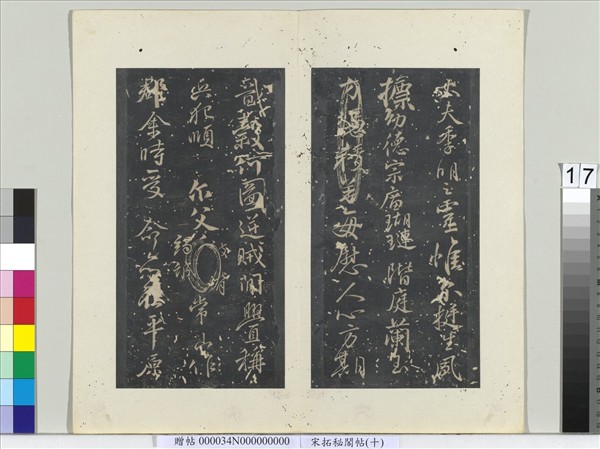 大夫季明之靈惟爾挺生夙
標幼德宗廟瑚璉階庭蘭玉
方憑積善每慰人心方期
戩穀何圖逆賊閒釁稱
兵犯順爾父竭誠常山作
郡余時受命亦在平原
17
贈帖 000034N000000000 宋拓秘閣帖(十)